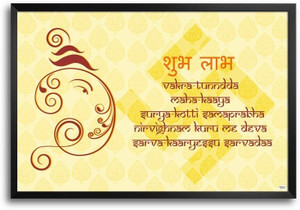 शुभ लाभ
vakra-tunndda
maha-kaaya
surya-kotti samaprabha
nirvighnam kuru me deva
sarva-kaaryessu sarvadaa